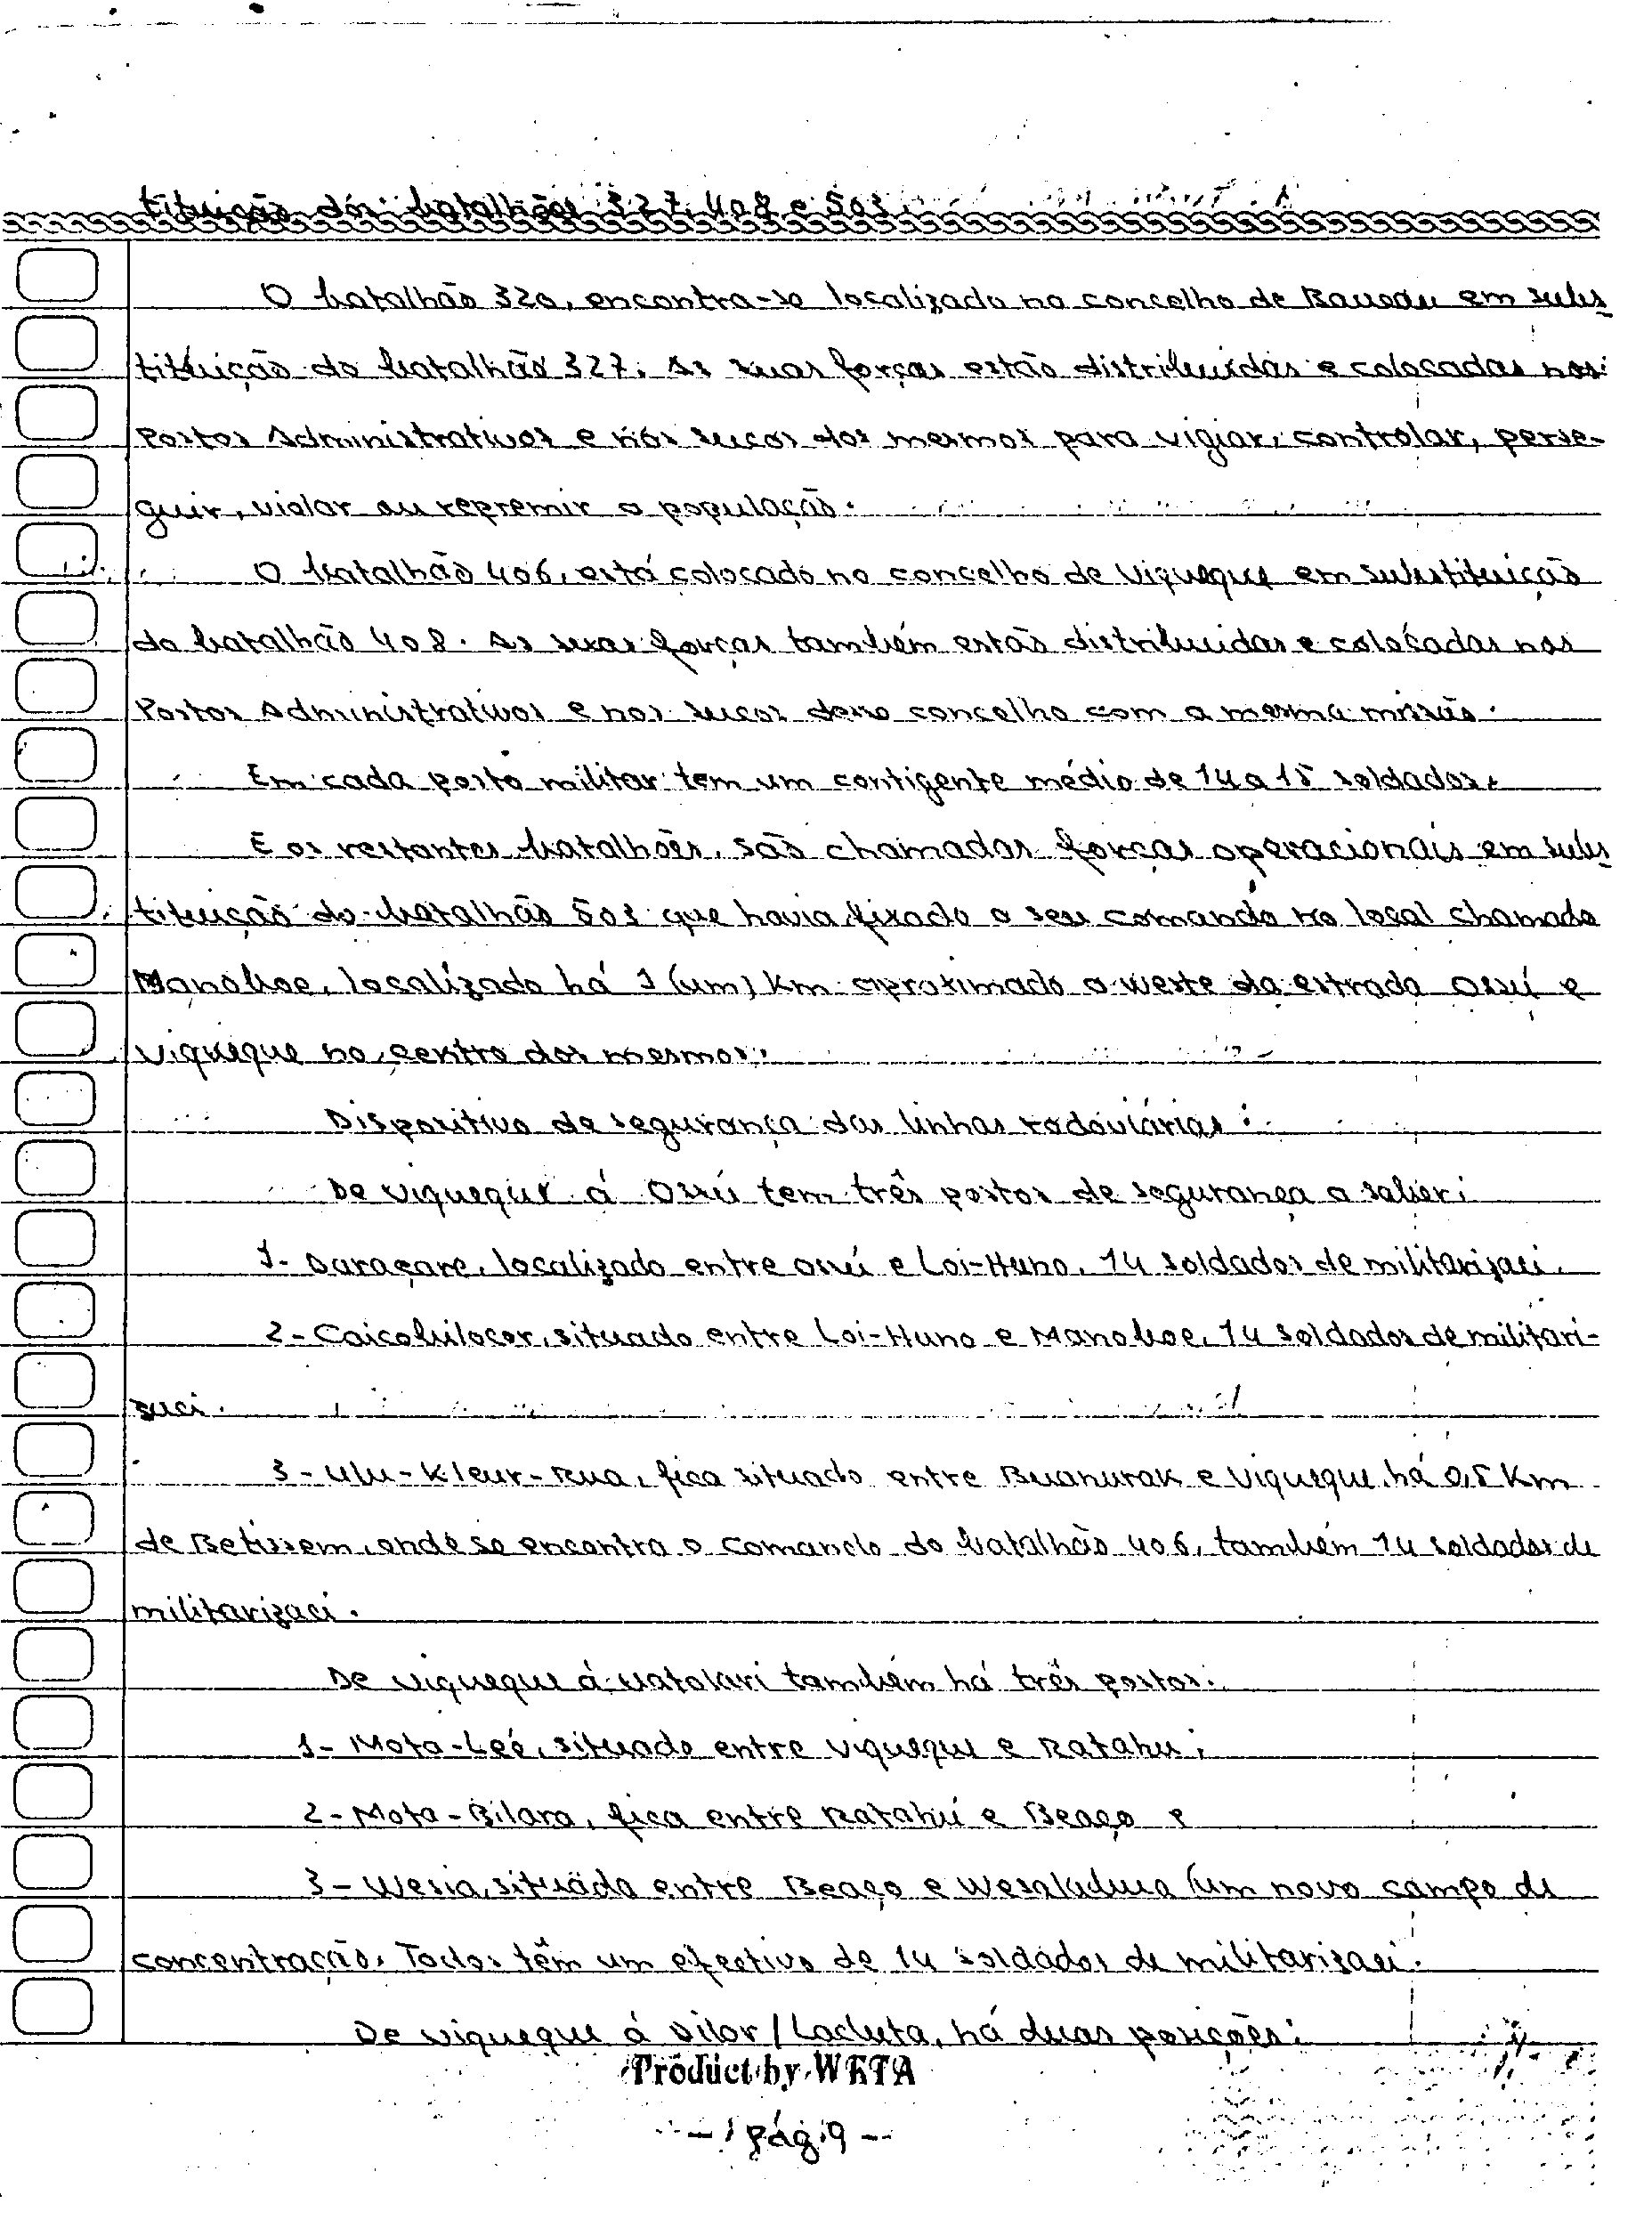 tituição dos batalhões 327, 408 e 503.
O batalhão 320, encontra-se localizado no concelho de Baucau em subs
tituição do batalhão 327. As suas forças estão distribuídas e colocadas nos
Postos Administrativos e nos sucos dos mesmos para vigiar, controlar, perse-
guir, violar ou repremir a população.
O batalhão 406, está colocado no concelho de Viqueque em substituição
do batalhão 408. As suas forças também estão distribuidas e colocadas nos
Postos Administrativos e nos sucos desse concelho com a mesma missão.
Em cada posto militar tem um contigente médio de 14 a 15 soldados.
E os restantes batalhões, são chamados forças operacionais em subs
tituição do batalhão 503 que havia fixado o seu comando no local chamado
Manoboe, localizado há 1 (um) Km aproximado a weste da estrada Ossú e
Viqueque no centro dos mesmos.
Dispositivo de segurança das linhas rodoviárias:
De Viqueque á Ossú tem três postos de segurança a saber:
1- Daraçare, localizado entre Ossú e Loi-Huno, 14 soldados de militarizaci.
2- Caicobilocor, situado entre Loi-Huno e Manoboe, 14 soldados de militari-
zaci.
3- Ulu-Kleur-Rua, fica situado entre Buanurak e Viqueque, há 0,5 Km
de Betissem, onde se encontra o comando do batalhão 406, também 14 soldados de
militarizaci.
De Viqueque á Uatolari também há três postos:
1- Mota-Leé, situado entre Viqueque e Ratahu;
2- Mota-Bilara, fica entre Ratahú e Beaço e
3- Wesia, situada entre Beaço e Wesaladuua (um novo campo de
concentração. Todos têm um efectivo de 14 soldados de militarizaci.
De Viqueque á Dilor / Lacluta, há duas posições:
Product by WETA
- pág. 9 -